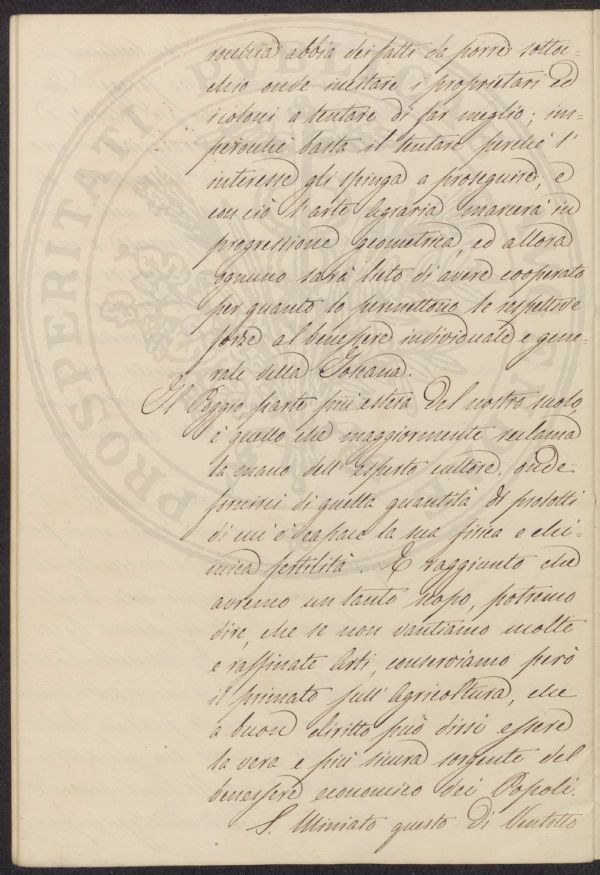 rocchia abbia dei fatti da porre sottoc-
chio onde incitare i proprietari ed
i coloni a tentare di far meglio; im-
perocchè basta il tentare perchè l'
interesse gli spinga a proseguire, e
con ciò l'arte Agraria marcerà in
progressione geometrica, ed allora
ognuno sarà lieto di avere cooperato
per quanto lo permettono le respettive
forze al benessere individuale e gene-
rale della Toscana.
Il Poggio, parte più estesa del nostro suolo,
è quello che maggiormente reclama
la mano dell'esperto cultore, onde
fornirci di quella quantità di prodotti
di cui è capace la sua fisica e chi-
mica fertilità. E raggiunto che
avremo un tanto scopo, potremo
dire, che se non vantiamo molte
e raffinate Arti, conserviamo però
il primato sull'Agricoltura, che
a buon diritto può dirsi essere
la vera e più sicura sorgente del
benessere economico dei Popoli.
S. Miniato questo dì Ventotto
PROSPERITATI PUBLICAE